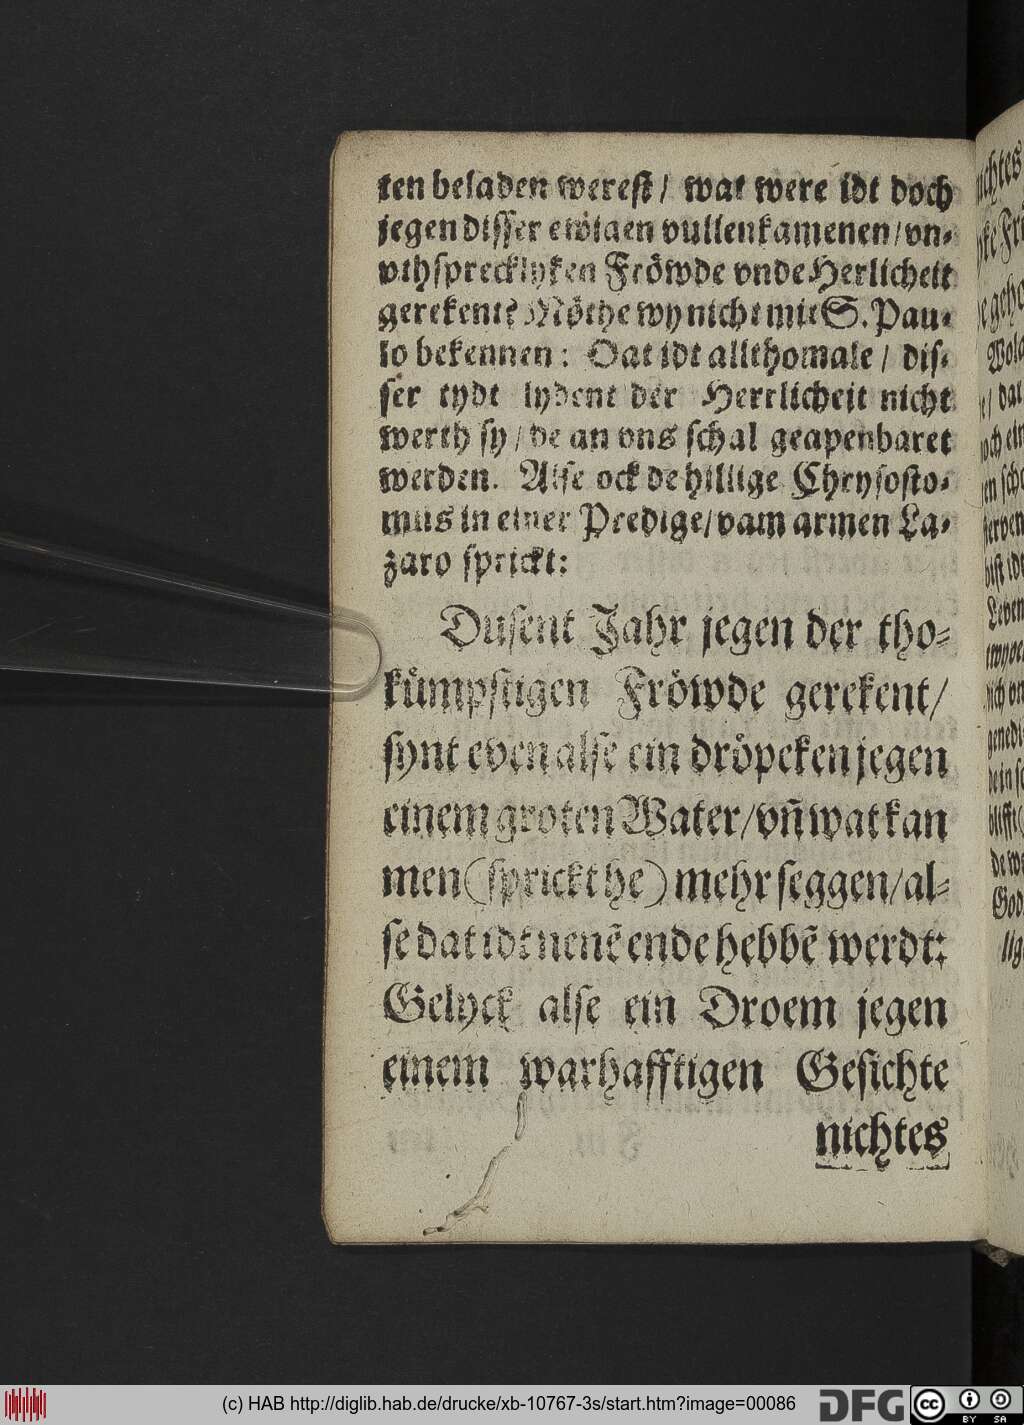 ten beladen werest / wat were idt doch
jegen disser ewigen vullenkamenen / vn⸗
vthsprecklyken Fröwde vnde Herlicheit
gerekent? Möthe wy nicht mit S. Pau⸗
lo bekennen: Dat idt allthomale / dis⸗
ser tydt lydent der Herrlicheit nicht
werth sy / de an vns schal geapenbaret
werden. Alse ock de hillige Chrysosto⸗
mus in einer Predige / vam armen La⸗
zaro sprickt:
Dusent Jahr jegen der tho⸗
kümpstigen Fröwde gerekent /
synt even alse ein dröpeken jegen
einem groten Water / vn̄ wat kan
men (sprickt he) mehr seggen / al⸗
se dat idt nenē ende hebbē werdt:
Gelyck alse ein Droem jegen
einem warhafftigen Gesichte
nichtes
(c) HAB http://diglib.hab.de/drucke/xb-10767-3s/start.htm?image=00086
DFG
cc
BY SA